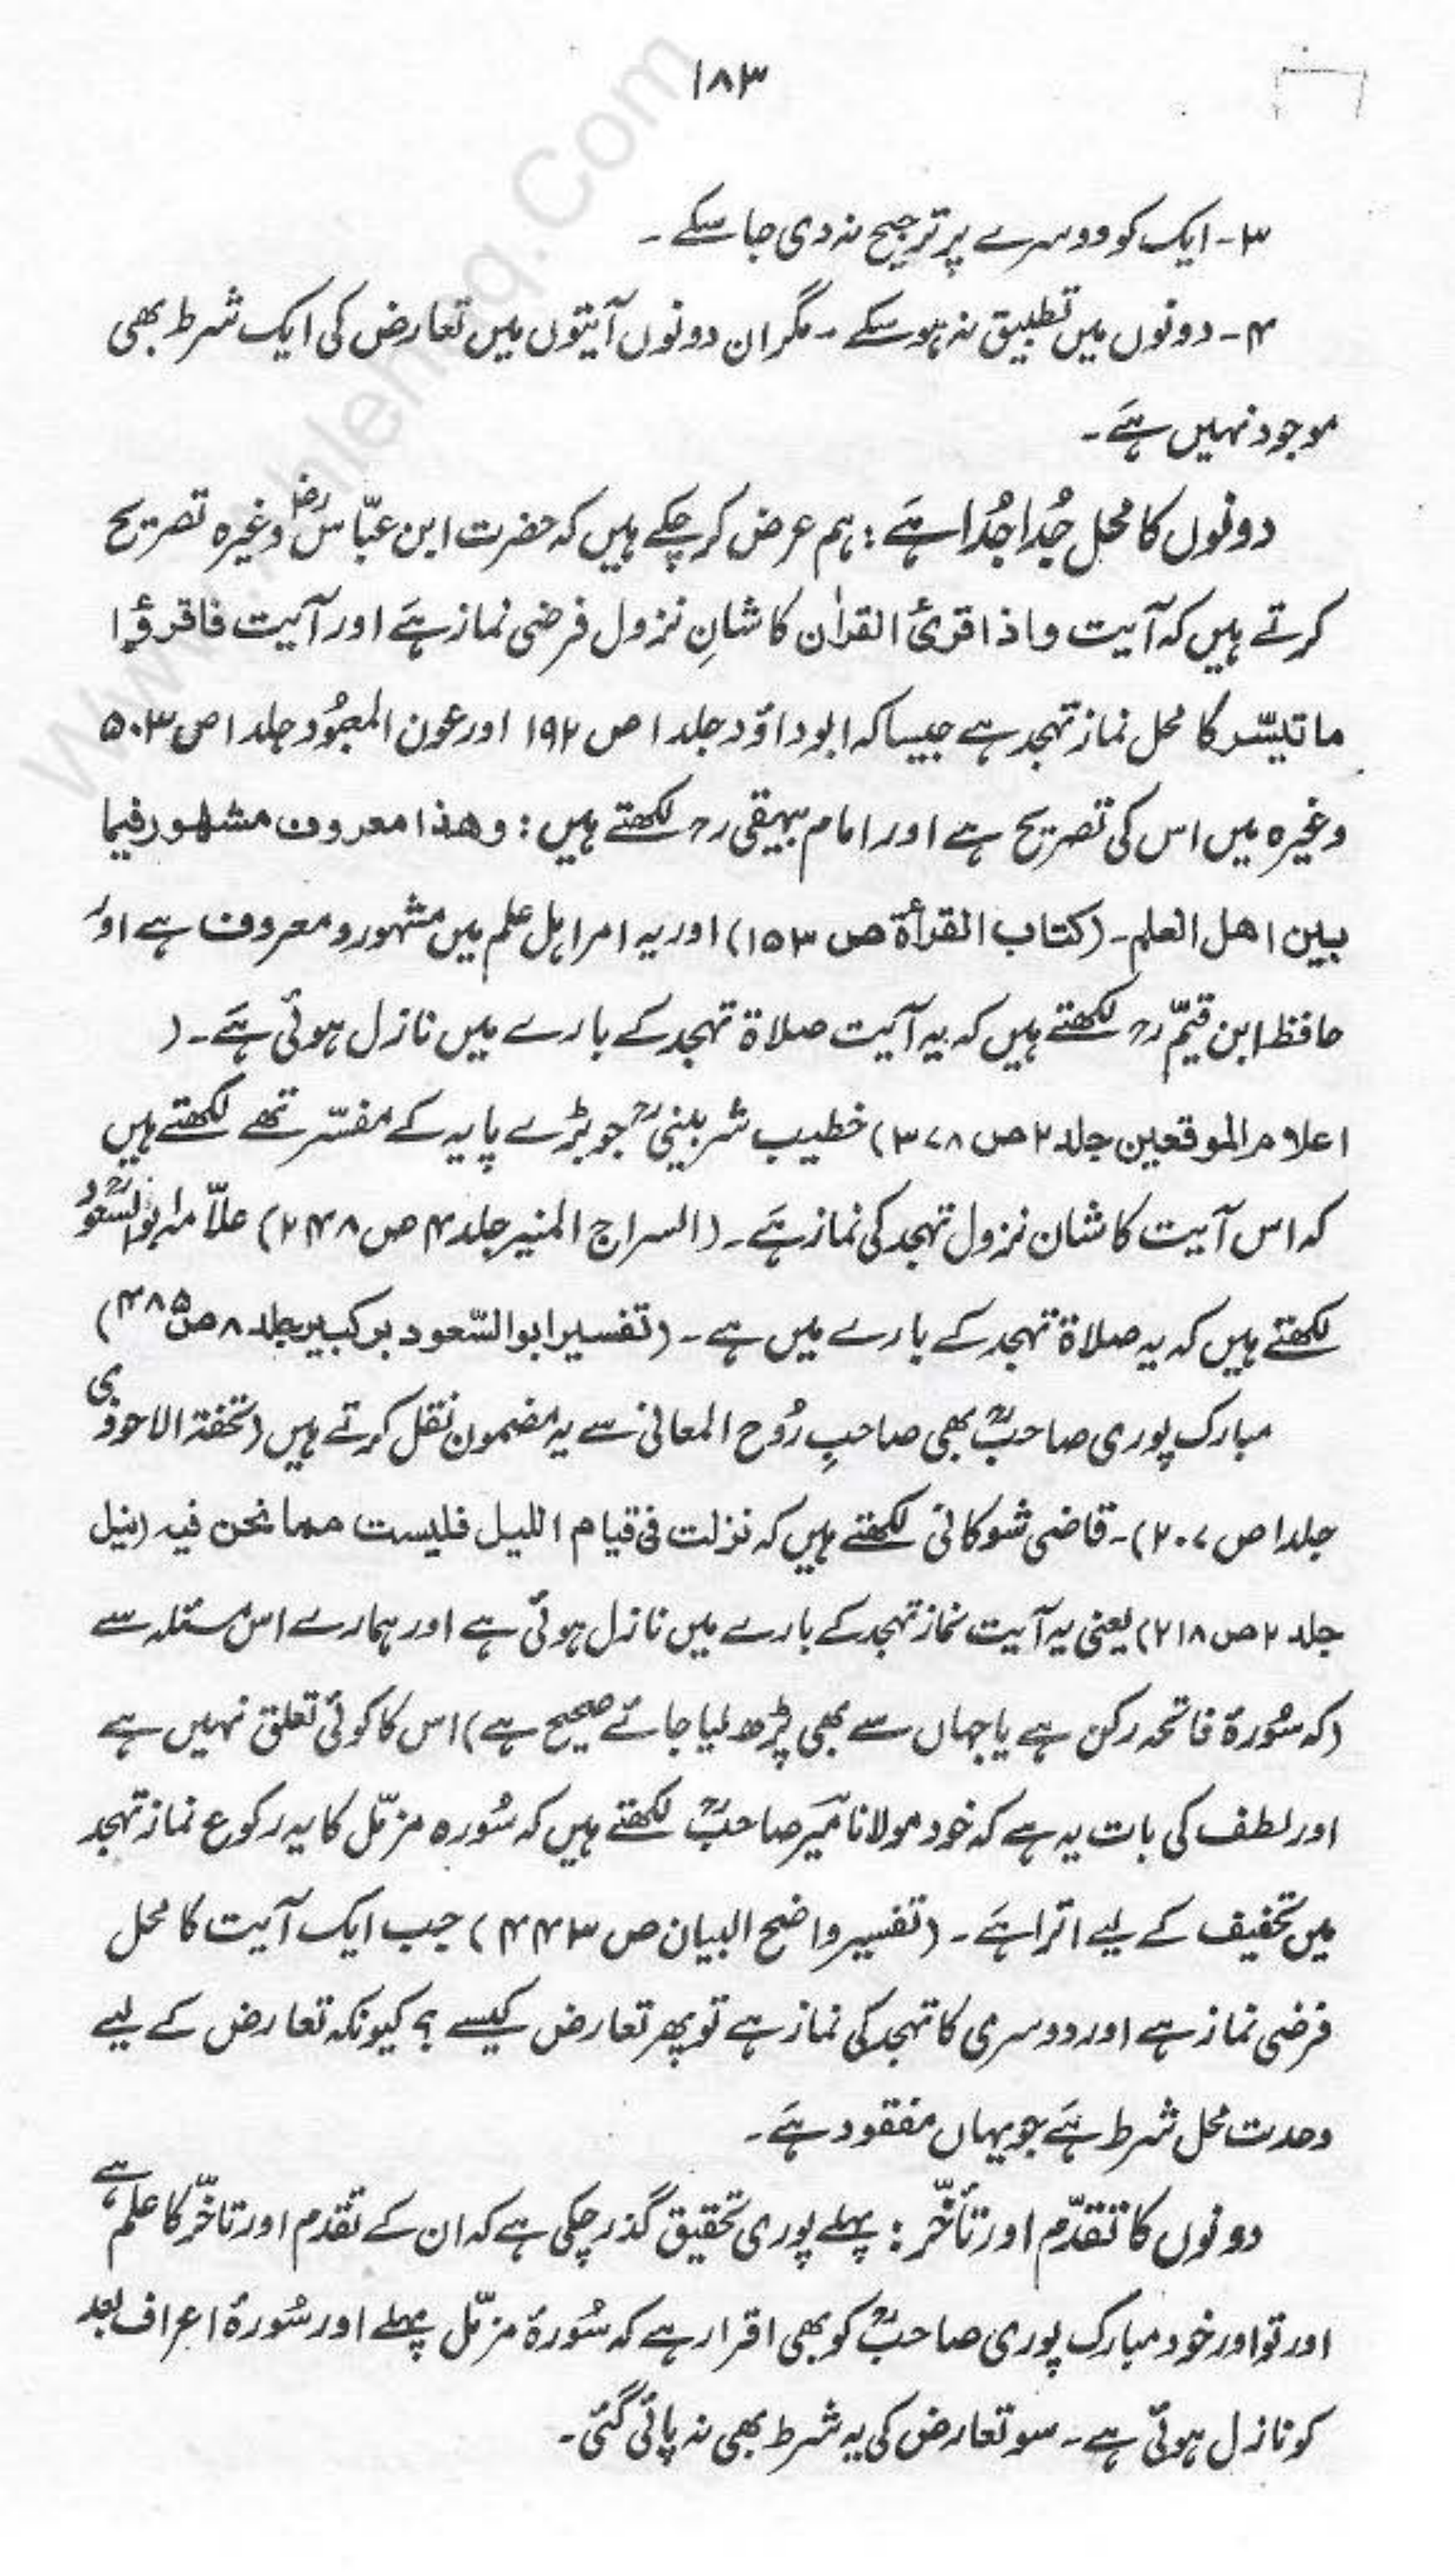 ۱۸۳
۳- ایک کو دوسرے پر ترجیح نہ دی جا سکے ۔
۴- دونوں میں تطبیق نہ ہو سکے ۔ مگر ان دونوں آیتوں میں تعارض کی ایک شرط بھی
موجود نہیں ہَے ۔
دونوں کا محل جُدا جُدا ہَے : ہم عرض کر چکے ہیں کہ حضرت ابن عبّاسؓ وغیرہ تصریح
کرتے ہیں کہ آیت واذا قرئ القرآن کا شانِ نزول فرضی نماز ہَے اور آیت فاقرؤا
ما تیسّر کا محل نماز تہجد ہے جیسا کہ ابو داؤد جلد ۱ ص ۱۹۲ اور عون المعبُود جلد ۱ ص ۵۰۳
وغیرہ میں اس کی تصریح ہے اور امام بیہقی رح لکھتے ہیں : وھذا معروف مشھور فیما
بین اھل العلم ۔ (کتاب القرأة ص ۱۵۳) اور یہ امر اہل علم میں مشہور و معروف ہے اور
حافظ ابن قیّم رح لکھتے ہیں کہ یہ آیت صلاة تہجد کے بارے میں نازل ہوئی ہَے ۔ (
اعلام الموقعین جلد ۲ ص ۳۷۸) خطیب شربینیؒ جو بڑے پایہ کے مفسّر تھے لکھتے ہیں
کہ اس آیت کا شان نزول تہجد کی نماز ہَے ۔ (السراج المنیر جلد ۴ ص ۲۴۸) علّامہ ابو السعودؒ
لکھتے ہیں کہ یہ صلاة تہجد کے بارے میں ہے ۔ (تفسیر ابو السّعود بر کبیر جلد ۸ ص ۴۸۵)
مبارک پوری صاحبؒ بھی صاحبِ رُوح المعانی سے یہ مضمون نقل کرتے ہیں (تحفة الاحوذی
جلد ۱ ص ۲۰۷) ۔ قاضی شوکانی لکھتے ہیں کہ نزلت فی قیام اللیل فلیست مما نحن فیہ (نیل
جلد ۲ ص ۲۱۸) یعنی یہ آیت نماز تہجد کے بارے میں نازل ہوئی ہے اور ہمارے اس مسئلہ سے
(کہ سُورۂ فاتحہ رکن ہے یا جہاں سے بھی پڑھ لیا جائے صحیح ہے) اس کا کوئی تعلق نہیں ہے
اور لطف کی بات یہ ہے کہ خود مولانا میَر صاحبؒ لکھتے ہیں کہ سُورہ مزمّل کا یہ رکوع نماز تہجد
میں تخفیف کے لیے اترا ہَے ۔ (تفسیر واضح البیان ص ۴۴۳) جب ایک آیت کا محل
فرضی نماز ہے اور دوسری کا تہجد کی نماز ہے تو پھر تعارض کیسے ؟ کیونکہ تعارض کے لیے
وحدت محل شرط ہَے جو یہاں مفقود ہَے ۔
دونوں کا تقدّم اور تأخّر : پہلے پوری تحقیق گذر چکی ہے کہ ان کے تقدم اور تاخّر کا علم ہے
اور تو اور خود مبارک پوری صاحبؒ کو بھی اقرار ہے کہ سُورۂ مزمّل پہلے اور سُورۂ اعراف بعد
کو نازل ہوئی ہے ۔ سو تعارض کی یہ شرط بھی نہ پائی گئی ۔